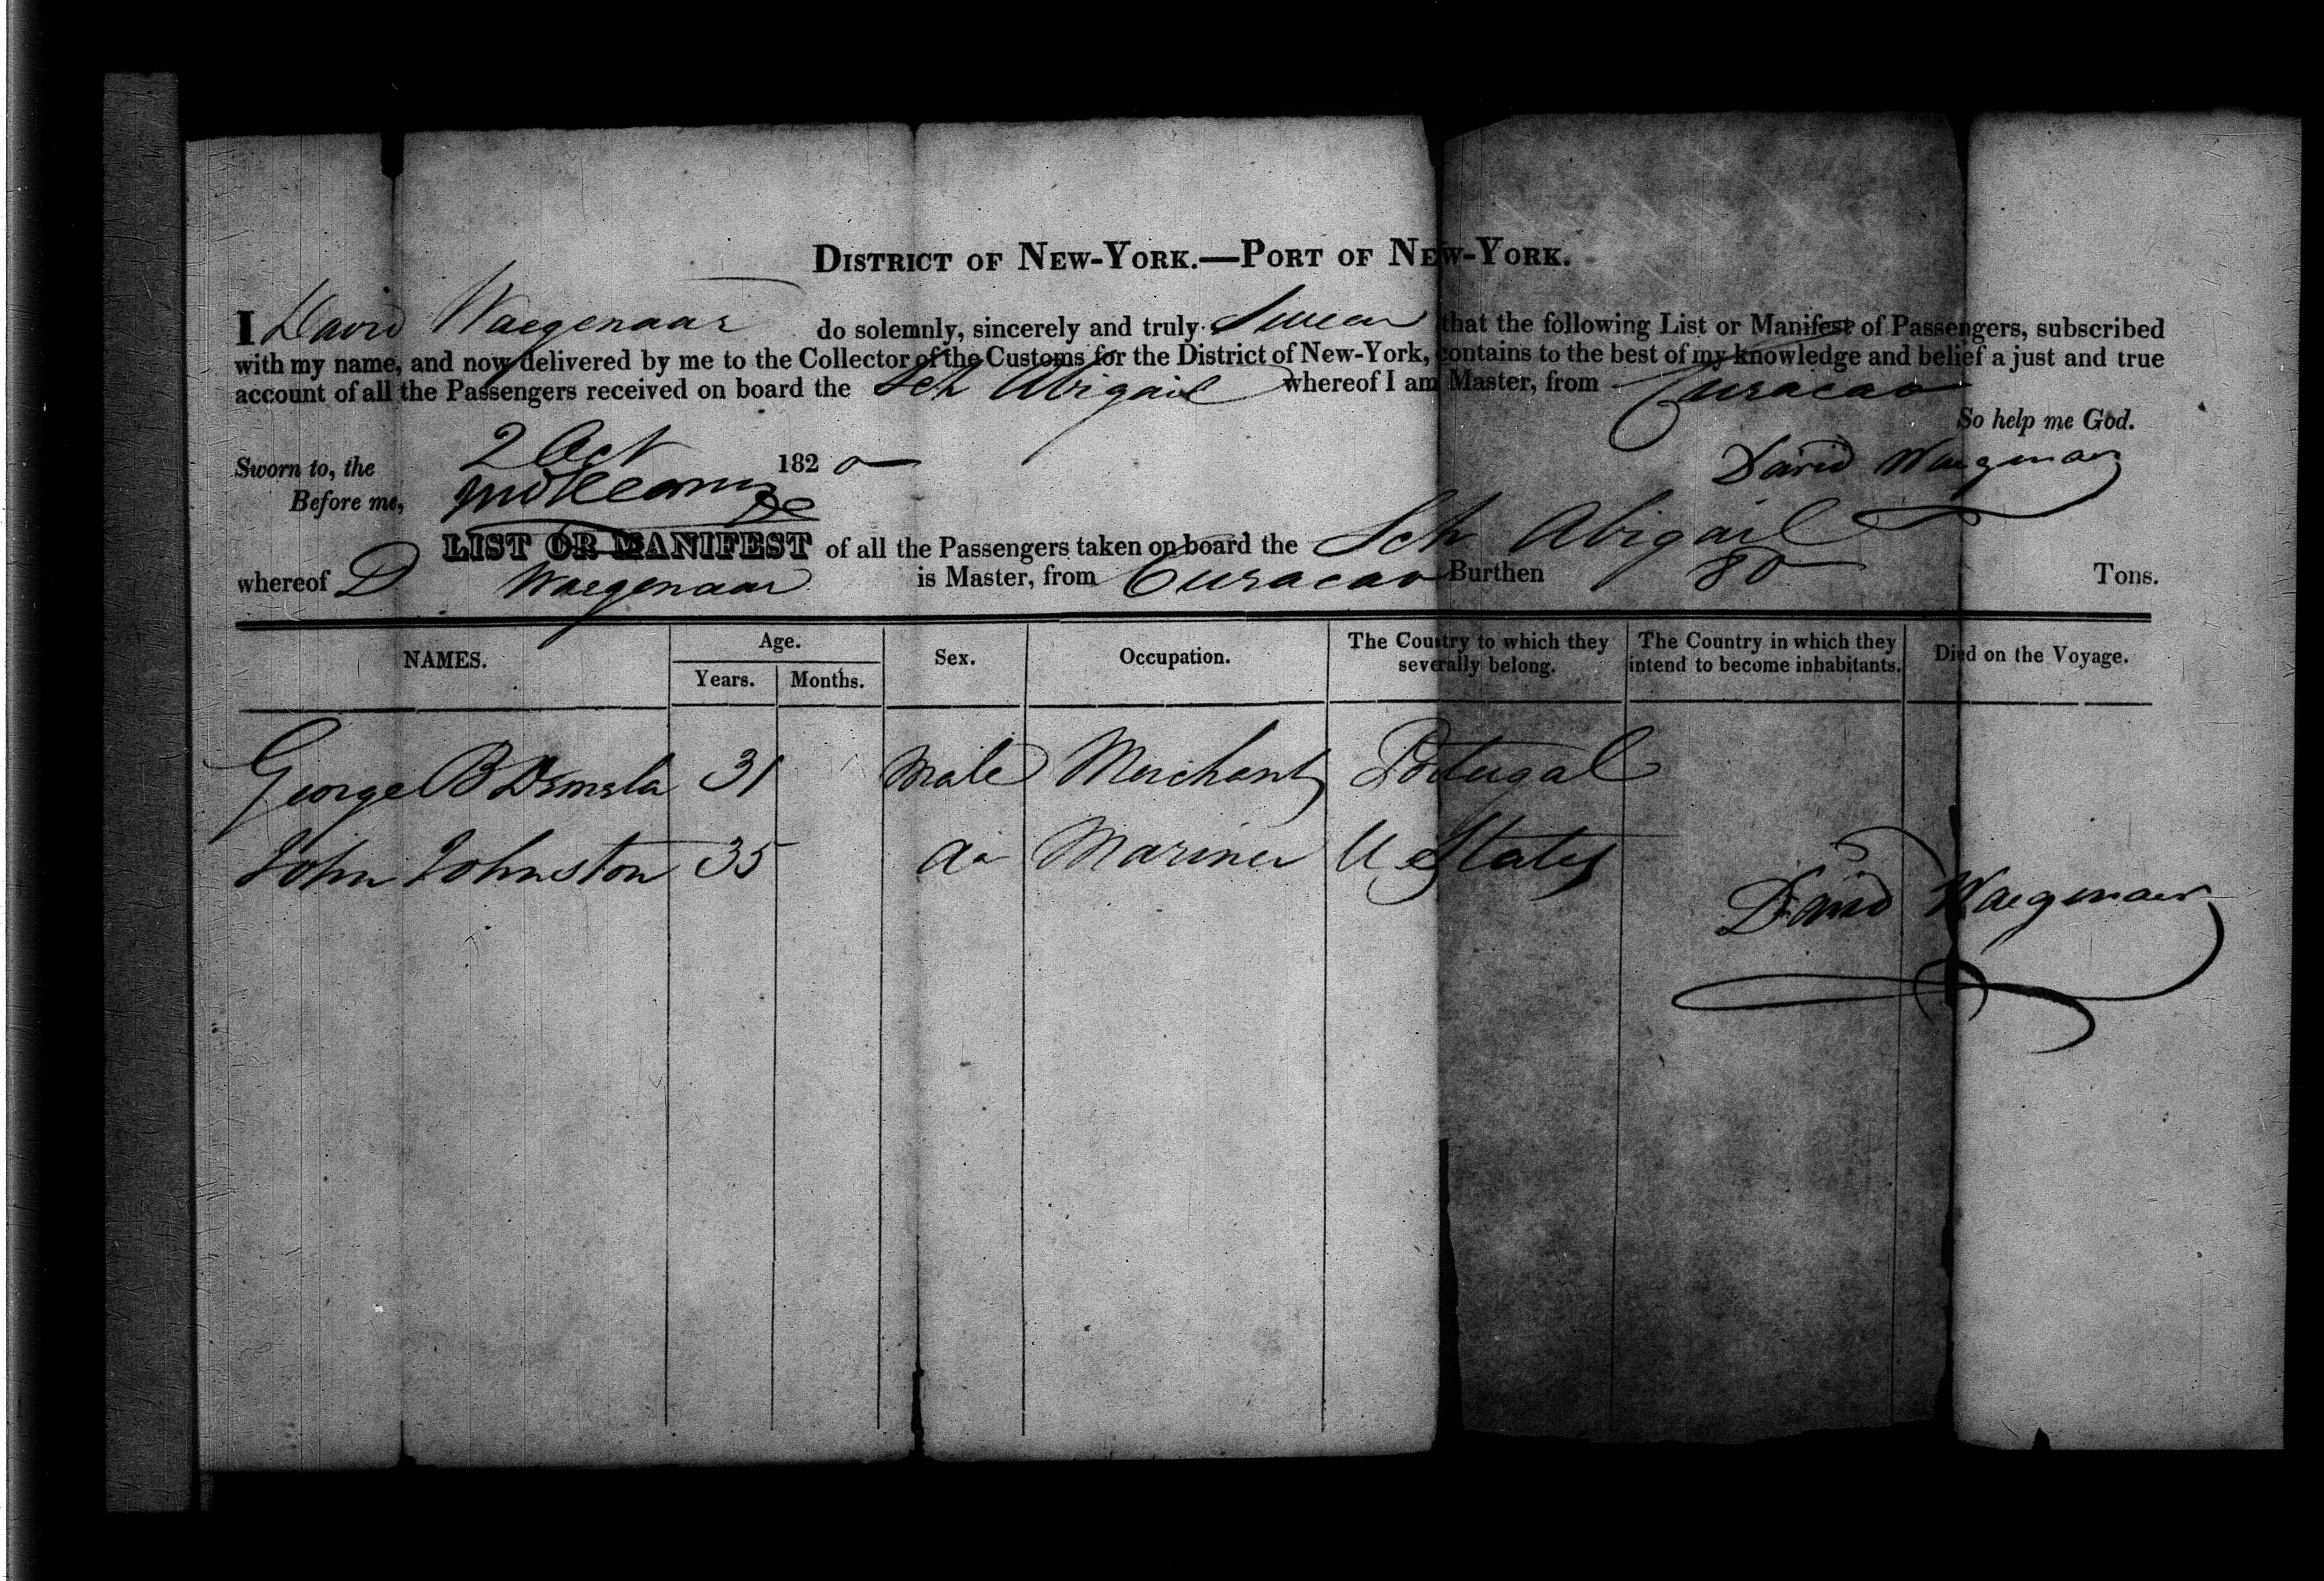 DISTRICT OF NEW-YORK.—PORT OF NEW-YORK.
I David Waegenaar do solemnly, sincerely and truly Swear that the following List or Manifest of Passengers, subscribed
with my name, and now delivered by me to the Collector of the Customs for the District of New-York, contains to the best of my knowledge and belief a just and true
account of all the Passengers received on board the Sch Abigail whereof I am Master, from Curacao
So help me God.
Sworn to, the 2 Oct 1820 David Waegenaar
Before me,
LIST OR MANIFEST of all the Passengers taken on board the Sch Abigail
whereof D Waegenaar is Master, from Curacao Burthen 80 Tons.
NAMES. Age. Sex. Occupation. The Country to which they severally belong. The Country in which they intend to become inhabitants. Died on the Voyage.
Years. Months.
George B 31 Male Merchant Portugal
John Johnston 35 Mariner U States
David Waegenaar